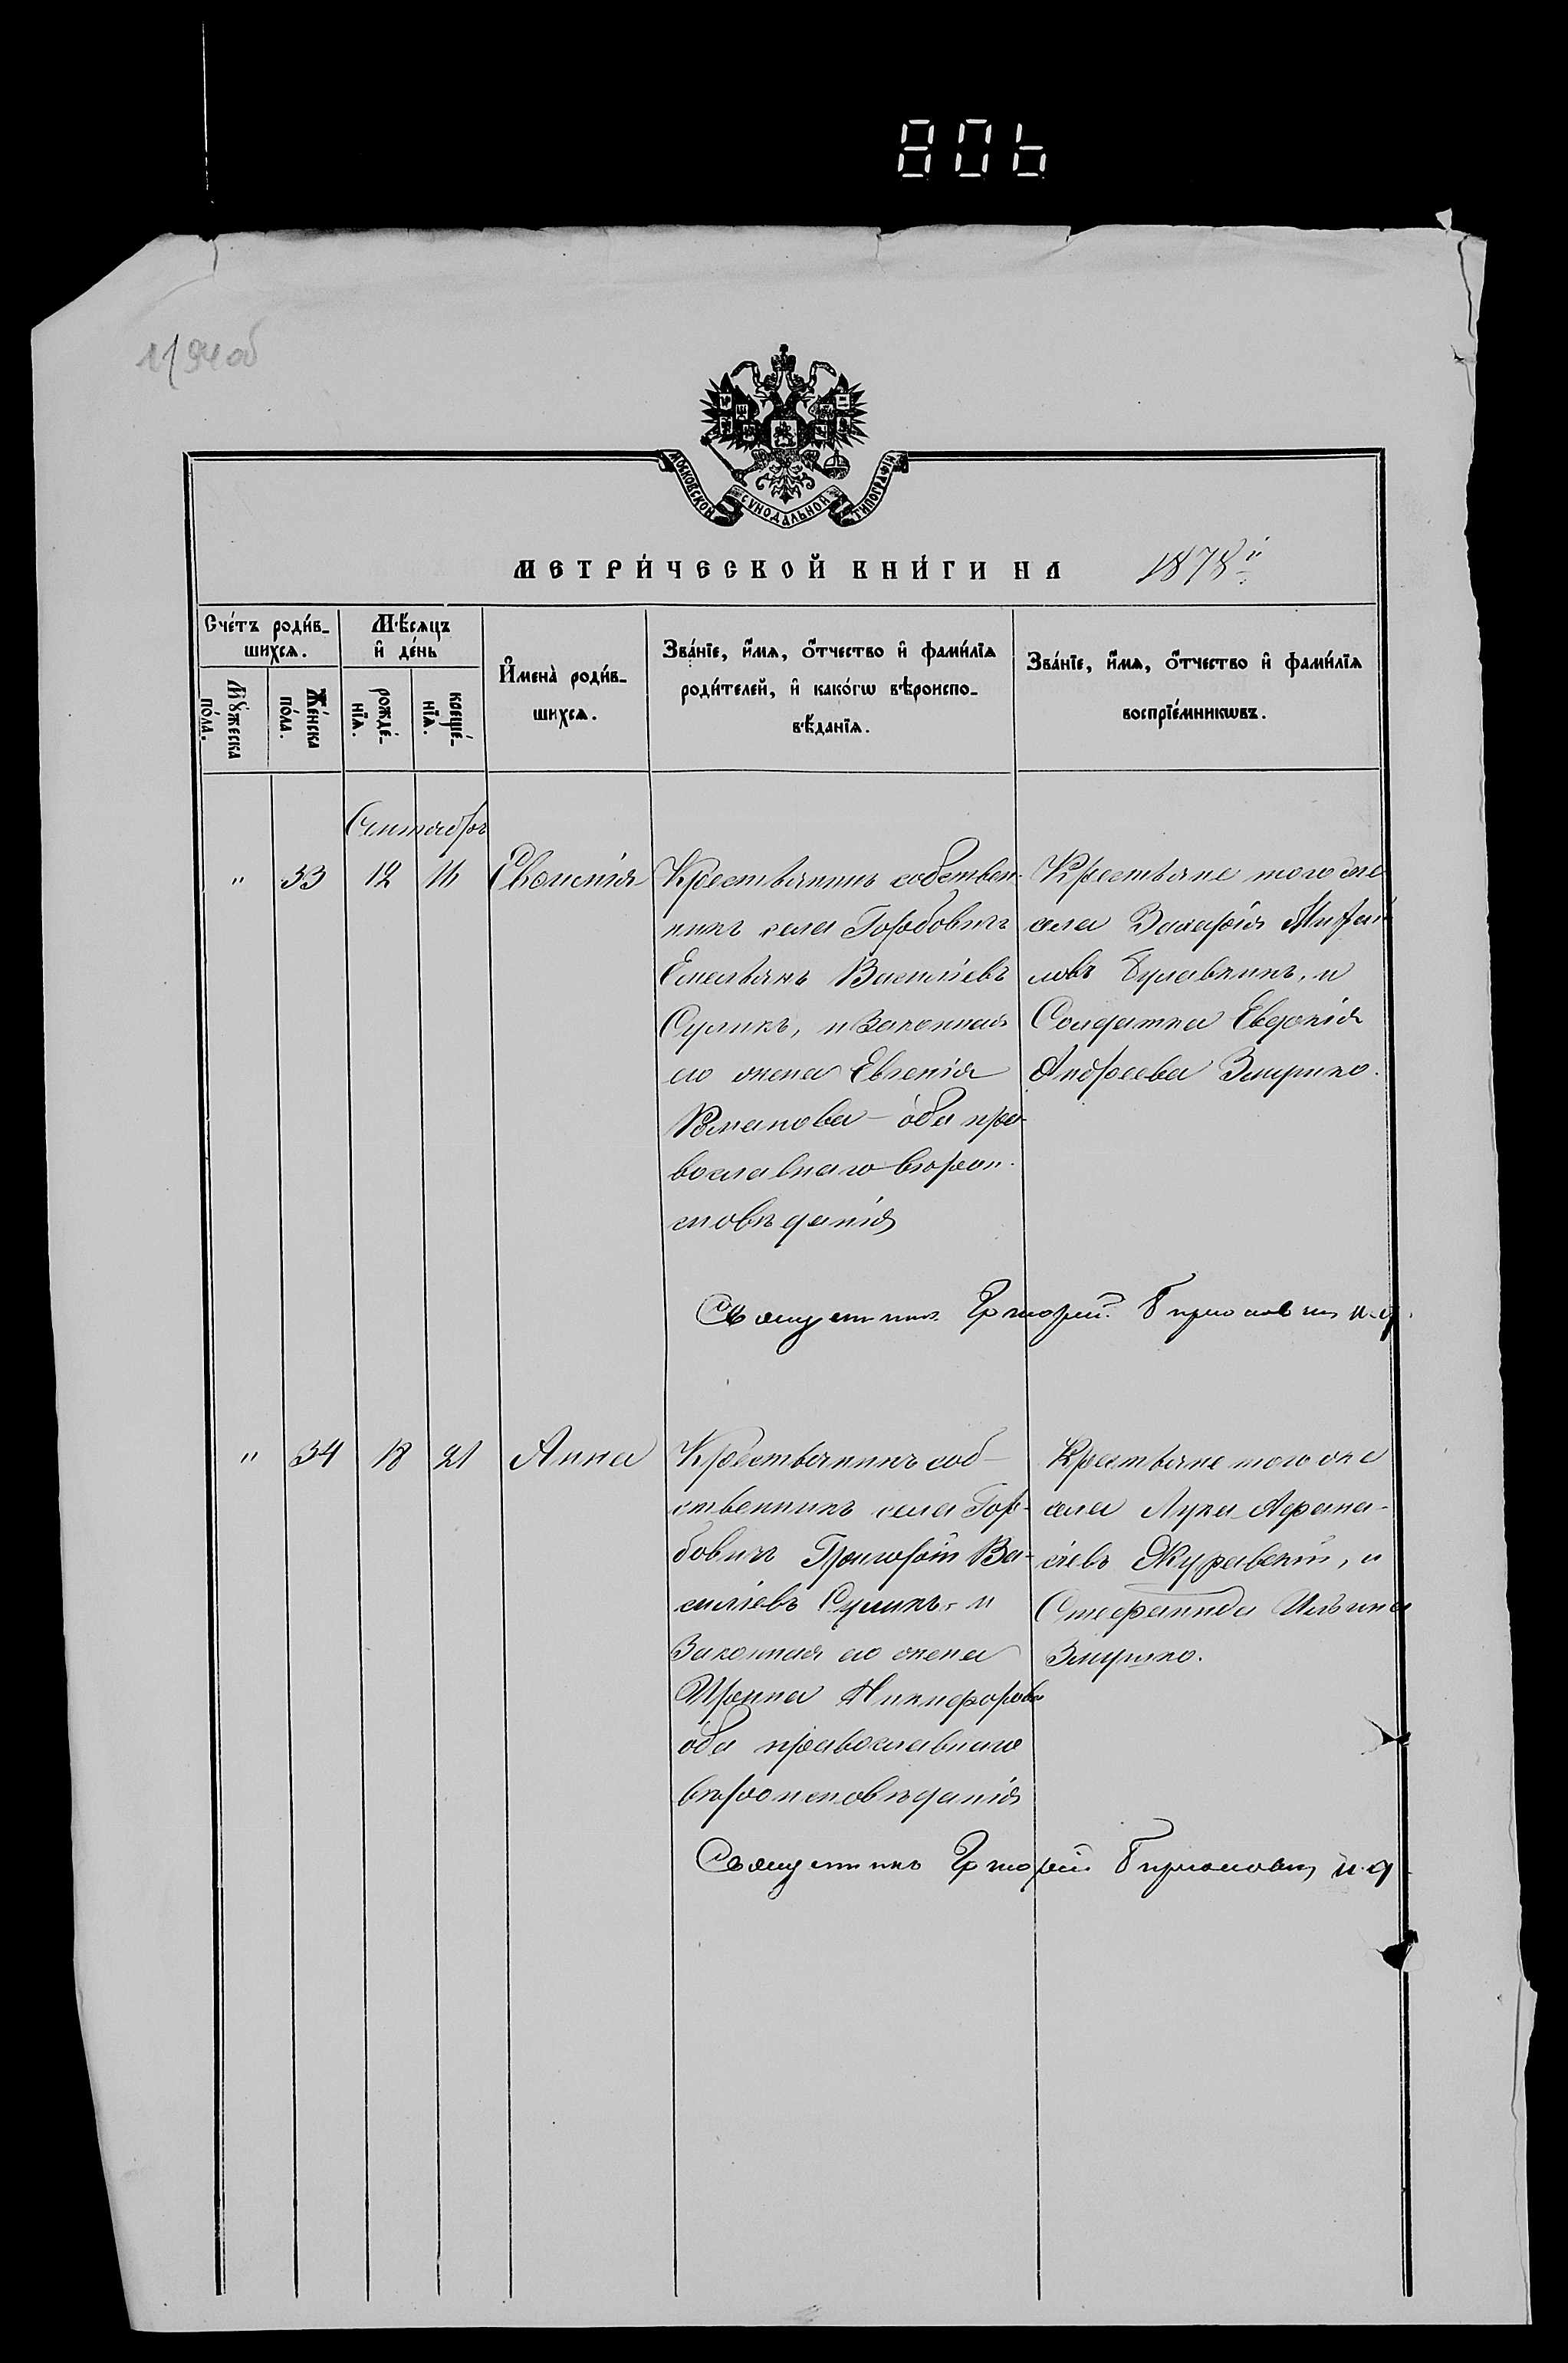 806
11/94об
МОСКОВСКОЙ СѴНОДАЛЬНОЙ ТИПОГРАФІИ
МЕТРИ́ЧЕСКОЙ КНИ́ГИ НА 1878й
Сче́тъ роди́в-
шихсѧ.
Мꙋ́жеска
по́ла.
Же́нска
по́ла.
Мѣ́сѧцъ
и҆ де́нь
рожде́-
нїѧ.
креще́-
нїѧ.
И҆мена̀ роди́в-
шихсѧ.
Зва́нїе, и҆́мѧ, ѻ҆́тчество и҆ фами́лїѧ
роди́телей, и҆ како́гѡ вѣроиспо-
вѣ́данїѧ.
Зва́нїе, и҆́мѧ, ѻ҆́тчество и҆ фами́лїѧ
воспрїе́мникѡвъ.
Сентябрь
" 33 12 16
Крестьянинъ собствен-
никъ села Горбовичъ
Емельянъ Василіевъ
Суликъ, и Законная
его жена Евгенія
Романова – оба пра-
вославнаго вѣроис-
повѣданія
Крестьяне того же
села Захарія Михай
ловъ Булавкинъ, и
Солдатка Евдокія
Андреева Змушко.
Священникъ Григорій и.д.
" 34 18 21 Анна
Крестьянинъ соб-
ственникъ села Гор-
бовичъ Григорій Ва-
силіевъ Суликъ и
Законная его жена
Ирина Никифорова
оба православнаго
вѣроисповѣданія
Крестьяне того же
села Лука Афана-
сіевъ Журавскій, и
Стефанида Ильина
Змушко.
Священникъ Григорій и.д.